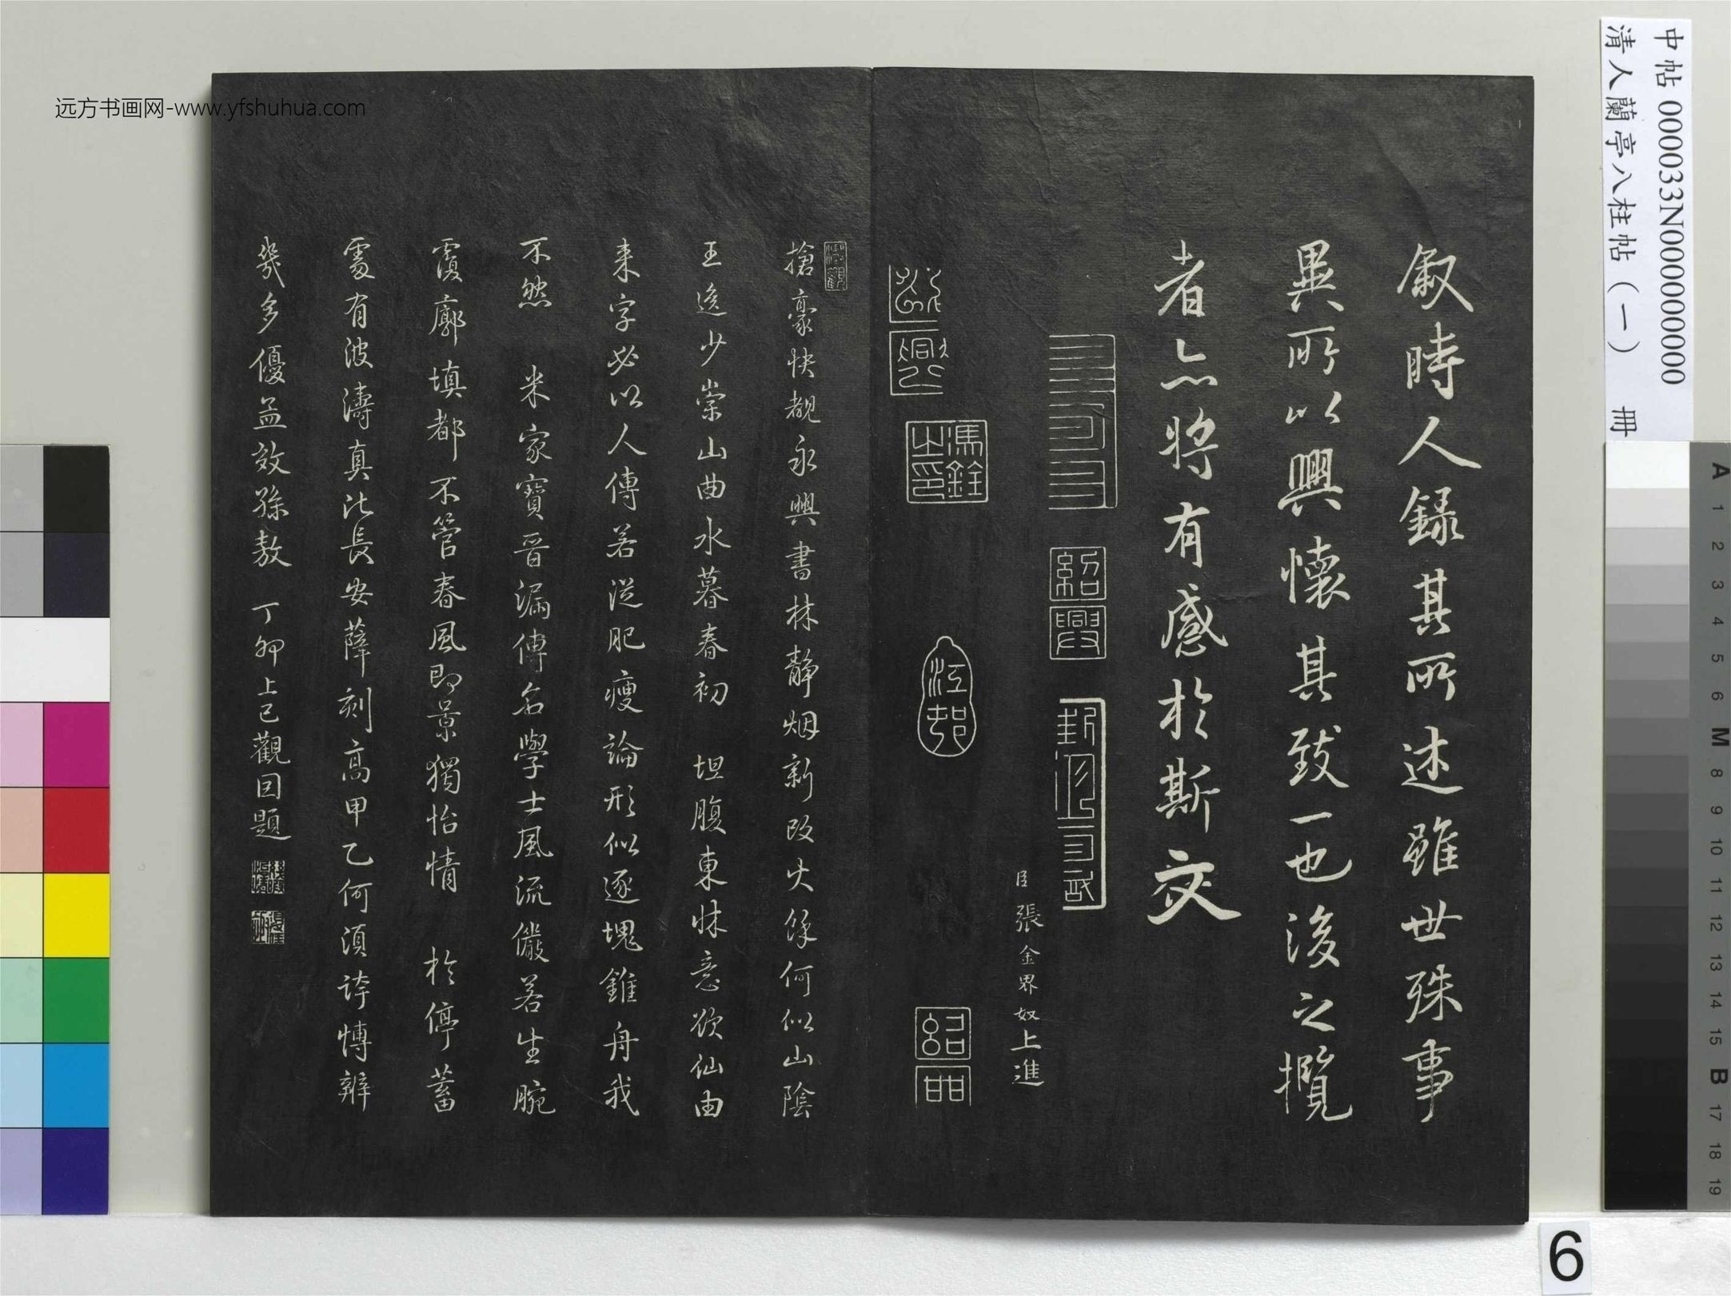 远方书画网-www.yfshuhua.com
中帖 000033N000000000
清人蘭亭八柱帖（一） 冊
敘時人錄其所述雖世殊事
異所以興懷其致一也後之攬
者亦將有感於斯文
紹興
臣張金界奴上進
馮銓之印
江邨
搶豪快覩永興書林靜烟新改火餘何似山陰
王逸少崇山曲水暮春初 坦腹東牀意欲仙由
来字必以人傳若從肥瘦論形似逐塊錐舟我
不然 米家寶晉漏傳名學士風流儼若生腕
廓填都不管春風即景獨怡情 於停蓄
處有波濤真比長安薛刻高甲乙何須誇愽辨
幾多優孟效孫敖 丁卯上巳觀回題
A 1 2 3 4 5 6 M 8 9 10 11 12 13 14 15 B 17 18 19
6